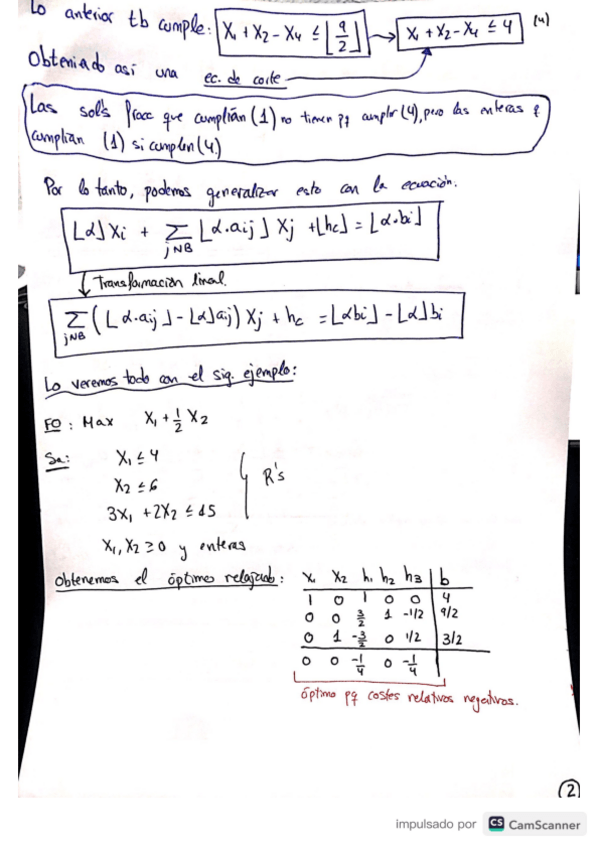 Lo anterior tb cumple: X₁ + X₂ - X₄ ≤ ⌊9/2⌋ → X₁ + X₂ - X₄ ≤ 4 (4)
Obteniendo así una ec. de corte
Las sol's Fracc que cumplían (1) no tienen pq cumplir (4), pero las enteras q
cumplían (1) si cumplen (4)
Por lo tanto, podemos generalizar esto con la ecuación.
⌊α⌋Xi + Σ ⌊α·aij⌋ Xj + ⌊hc⌋ = ⌊α·bi⌋
jNB
Transformación lineal.
Σ (⌊α·aij⌋ - ⌊α⌋aij) Xj + hc = ⌊αbi⌋ - ⌊α⌋bi
jNB
Lo veremos todo con el sig. ejemplo:
FO: Max X₁ + 1/2 X₂
Sa: X₁ ≤ 4
X₂ ≤ 6
R's
3X₁ + 2X₂ ≤ 15
X₁, X₂ ≥ 0 y enteras
Obtenemos el óptimo relajado:
X₁ X₂ h₁ h₂ h₃ b
1 0 1 0 0 4
0 0 3/2 1 -1/2 9/2
0 1 -3/2 0 1/2 3/2
0 0 -1/4 0 -1/4
óptimo pq costes relativos negativos.
2
impulsado por CS CamScanner